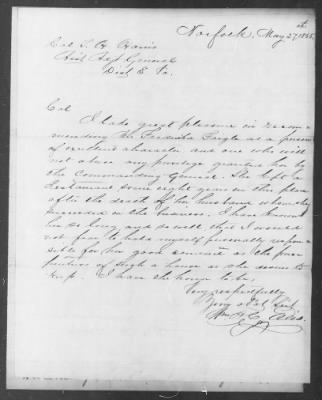 Norfolk, May 27, 1865.
Col T. H. Harris
Asst Adj General
Dist E Va.
Col
I take great pleasure in recom
mending Mrs Fredrika as a person
of excellent character and one who will
not abuse any privilege granted her by
the Commanding General. She kept a
Restaurant some eight years in this place
after the death of her husband whom she
succeeded in the business. I have known
her so long and so well that I would
not fear to hold myself personally respon
sible for her good conduct as the pro
prietor of such a house as she desires to
keep. I have the honor to be
Very respectfully
Your obdt Servt
Wm H. C.